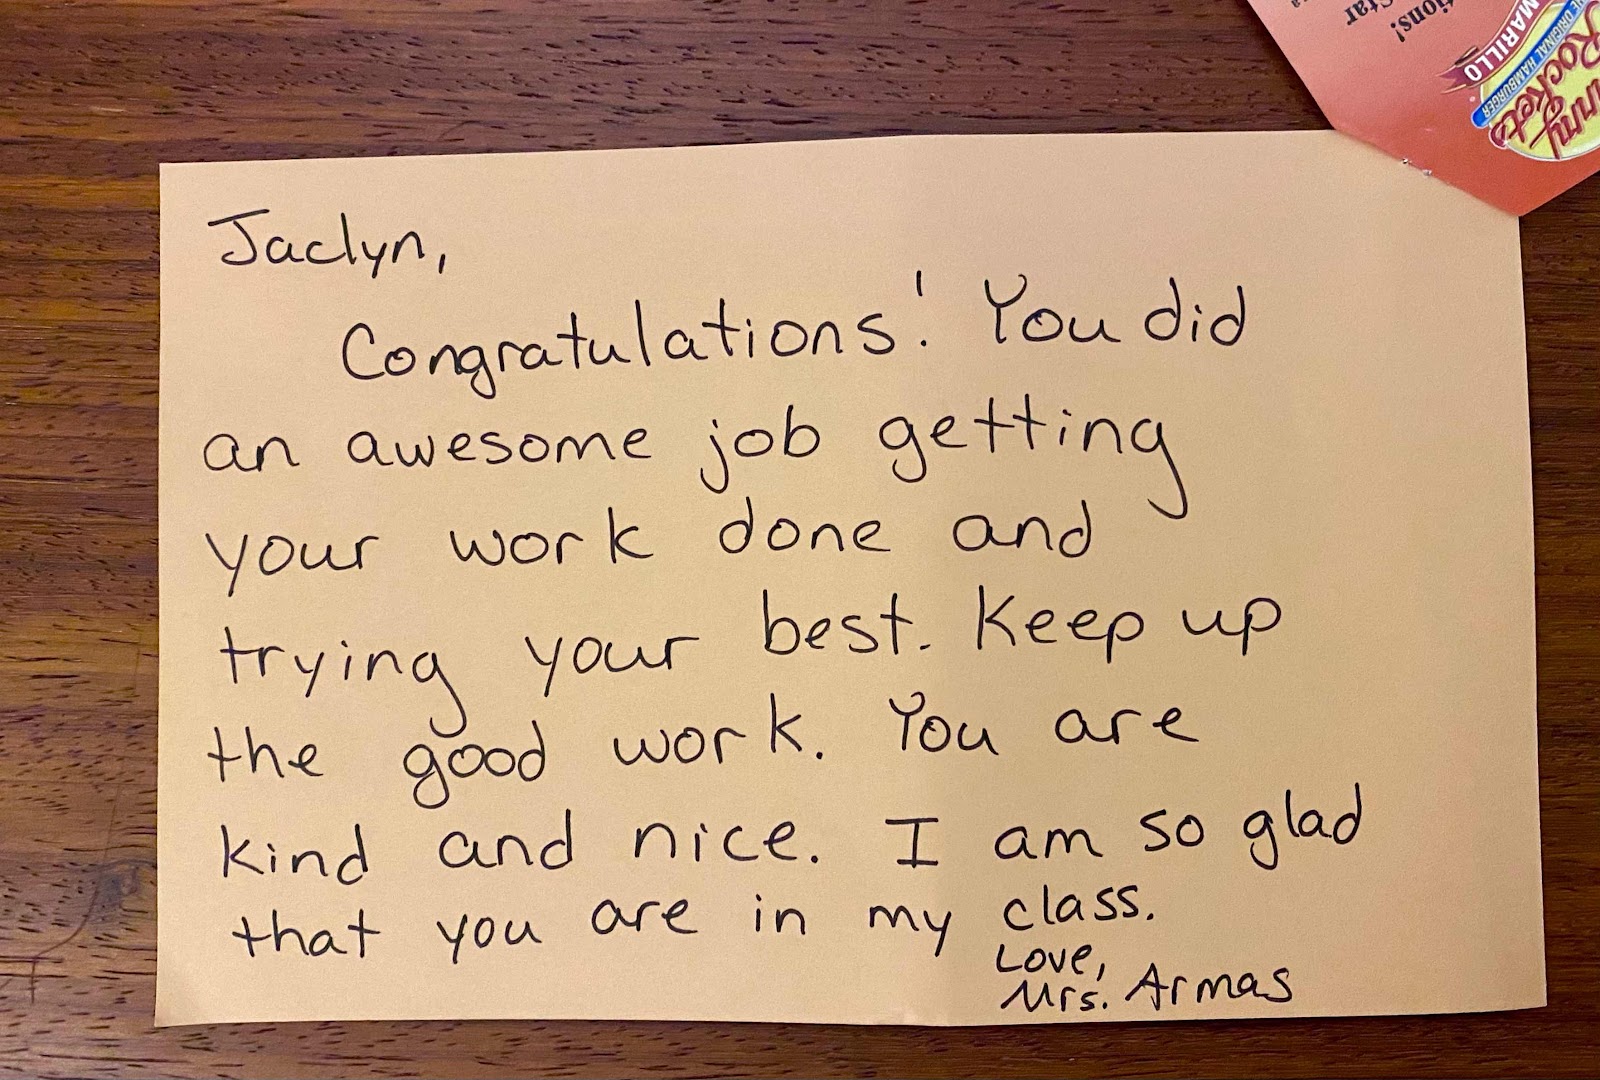 Jaclyn,
Congratulations! You did
an awesome job getting
your work done and
trying your best. Keep up
the good work. You are
kind and nice. I am so glad
that you are in my class.
Love,
Mrs. Armas
tions!
Star
MARILLO
ORIGINAL HAMBURGER
Rockets